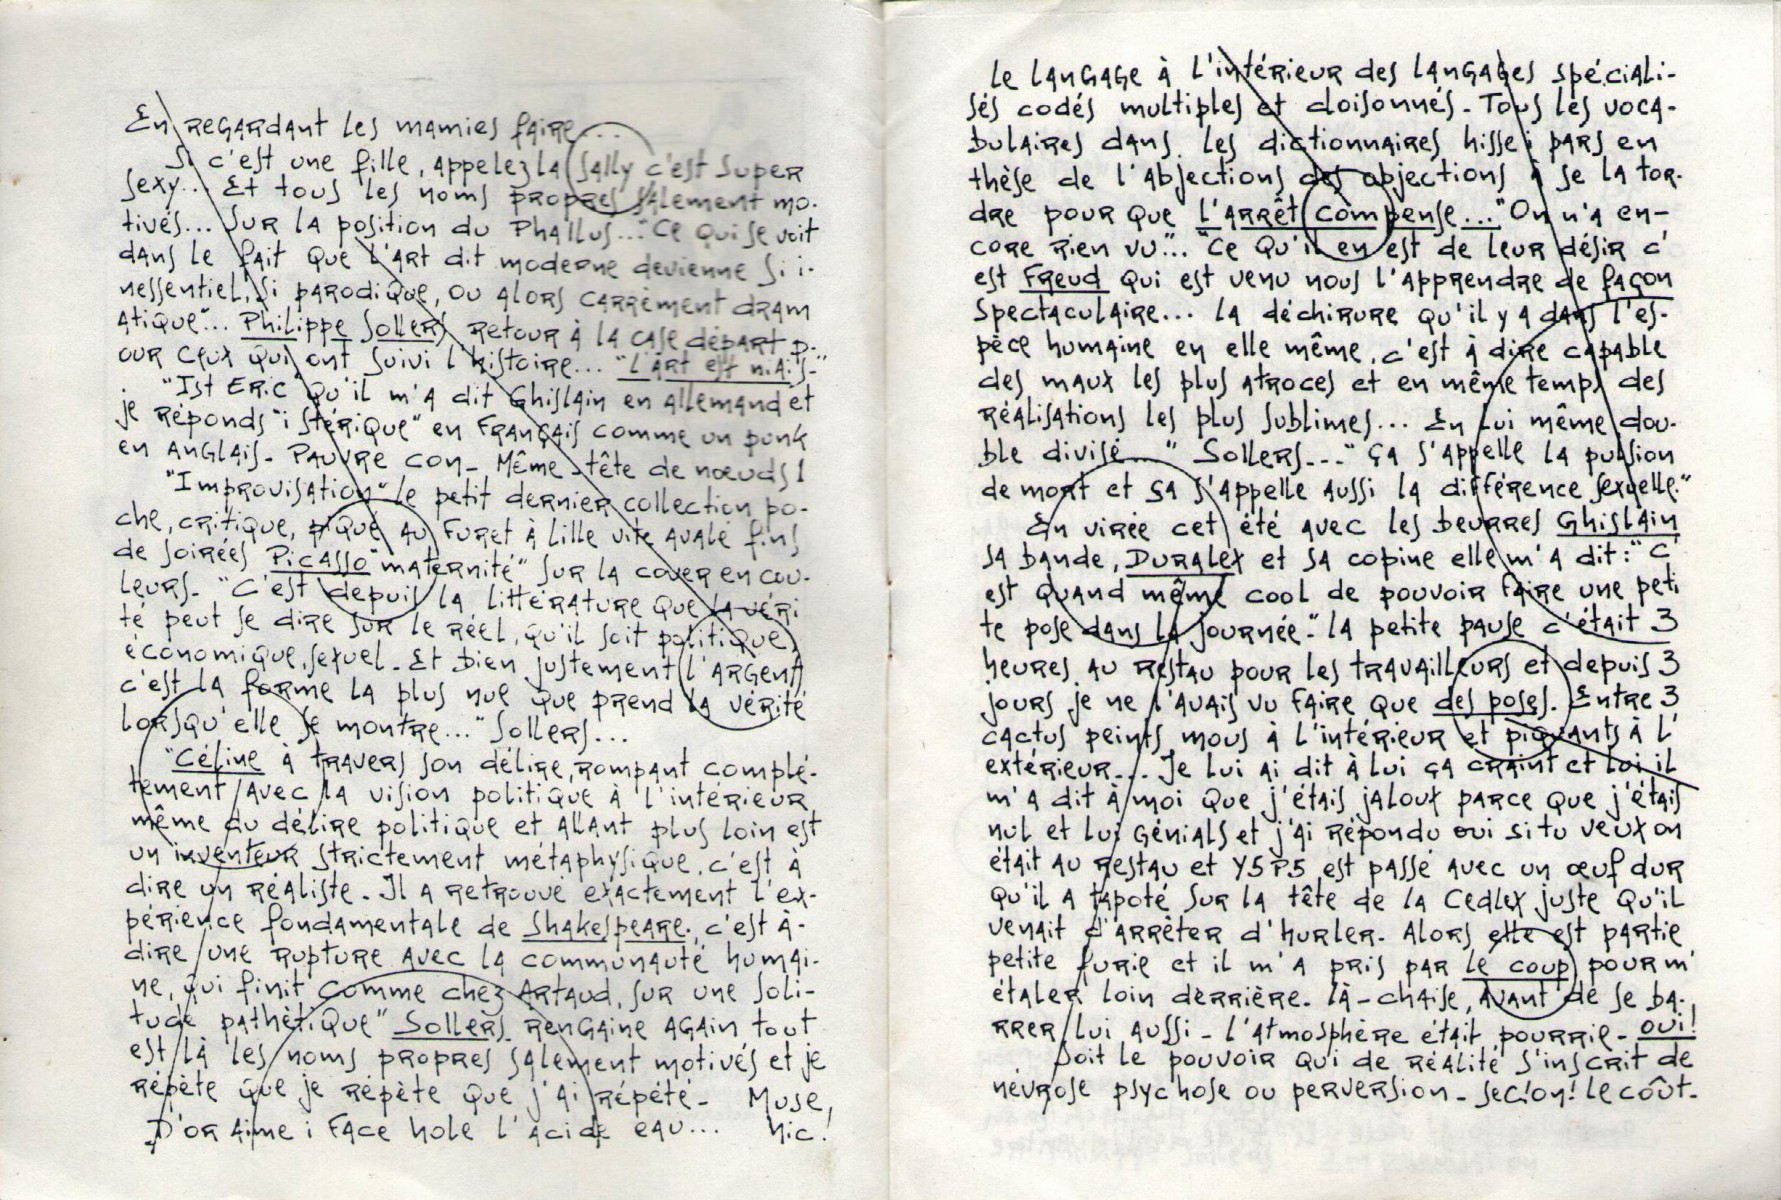 En regardant les mamies faire...
Si c'est une fille, appelez la Sally c'est super
sexy... Et tous les noms propres salement mo-
tivés... Sur la position du Phallus... "Ce qui se voit
dans le fait que l'art dit moderne devienne si i-
nessentiel, si parodique, ou alors carrément dram
atique"... Philippe Sollers retour à la case départ p-
our ceux qui ont suivi l'histoire... "L'art est n.i.s."
"Ist Eric" qu'il m'a dit Ghislain en allemand et
je réponds "i stérique" en Français comme un punk
en anglais - Pauvre con - Même tête de nœuds !
"Improvisation" le petit dernier collection po-
che, critique, pique au Furet à Lille vite avalé fins
de soirées Picasso "maternité" sur la cover en cou-
leurs - "C'est depuis la littérature que la véri
té peut se dire sur le réel, qu'il soit politique,
économique, sexuel - Et bien justement l'argent
c'est la forme la plus nue que prend la vérité
lorsqu'elle se montre..." Sollers...
"Céline à travers son délire, rompant complé-
tement avec la vision politique à l'intérieur
même du délire politique et allant plus loin est
un inventeur strictement métaphysique, c'est à
dire un réaliste - Il a retrouvé exactement l'ex-
périence fondamentale de Shakespeare, c'est à-
dire une rupture avec la communauté humai-
ne, qui finit comme chez Artaud, sur une soli-
tude pathètique" Sollers. Rengaine again tout
est là les noms propres salement motivés et je
répète que je répète que j'ai répété - Muse,
D'or aime i face hole l'acide eau... hic!
Le langage à l'intérieur des langages spéciali-
sés codés multiples et cloisonnés - Tous les voca-
bulaires dans les dictionnaires hisse i pars en
thèse de l'abjections des objections à se la tor-
dre pour que l'arrêt compense..." On n'a en-
core rien vu"... "Ce qu'il en est de leur désir c'
est Freud qui est venu nous l'apprendre de façon
spectaculaire... la déchirure qu'il y a dans l'es-
pèce humaine en elle même, c'est à dire capable
des maux les plus atroces et en même temps des
réalisations les plus sublimes... En lui même dou-
ble divisé..." Sollers..." ça s'appelle la pulsion
de mort et sa s'appelle aussi la différence sexuelle."
En virée cet été avec les beurres Ghislain
sa bande, Duralex et sa copine elle m'a dit : "C'
est quand même cool de pouvoir faire une peti
te pose dans la journée". La petite pause c'était 3
heures au restau pour les travailleurs et depuis 3
jours je ne l'avais vu faire que des poses. Entre 3
cactus peints mous à l'intérieur et piquants à l'
extérieur... Je lui ai dit à lui ça craint et lui il
m'a dit à moi que j'étais jaloux parce que j'étais
nul et lui génials et j'ai répondu oui si tu veux on
était au restau et Y5P5 est passé avec un œuf dur
qu'il a tapoté sur la tête de la Cedlex juste qu'il
venait d'arrêter d'hurler - Alors elle est partie
petite furie et il m'a pris par le coup pour m'
étaler loin derrière - là - chaise, avant de se ba-
rrer lui aussi - l'atmosphère était pourrie - oui!
Soit le pouvoir qui de réalité s'inscrit de
névrose psychose ou perversion - sec!on! le coût -